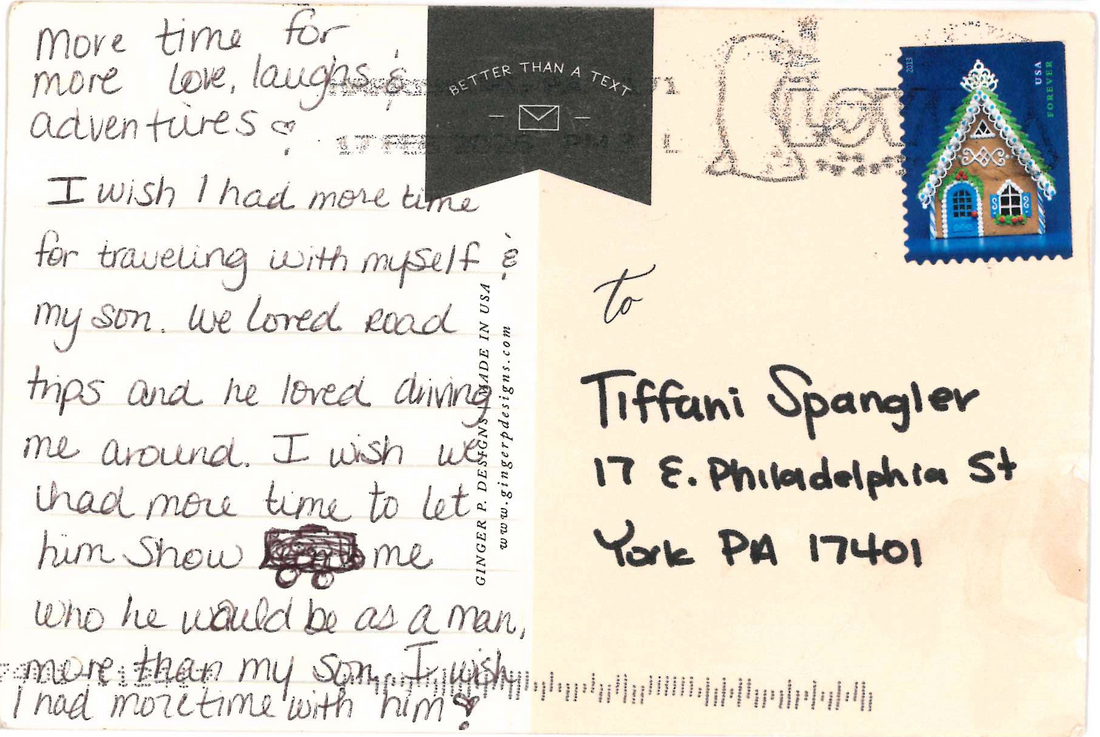 more time for
more love, laughs &
adventures ♡
I wish I had more time
for traveling with myself &
my son. We loved road
trips and he loved driving
me around. I wish we
had more time to let
him show me
who he would be as a man,
more than my son. I wish
I had more time with him ♡
BETTER THAN A TEXT
GINGER P. DESIGNS MADE IN USA
www.gingerpdesigns.com
17 FEB PM
2013
USA
FOREVER
to
Tiffani Spangler
17 E. Philadelphia St
York PA 17401